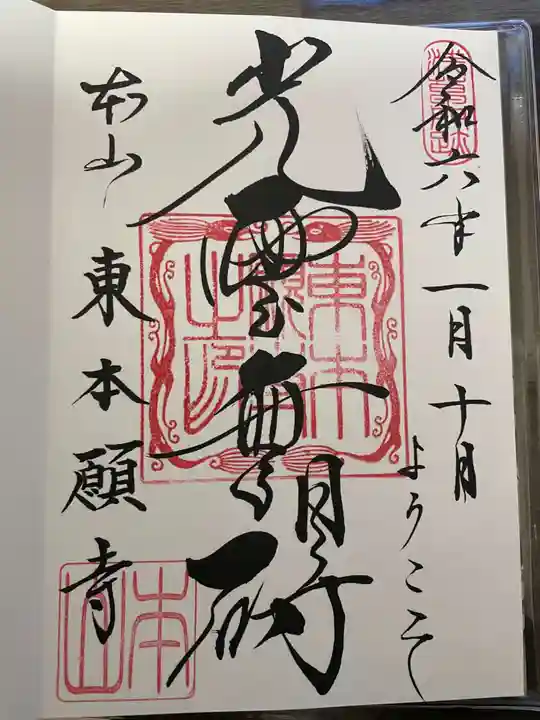 令和六年一月十日
ようこそ
光雲無碍
本山 東本願寺
東本願寺之印
本山